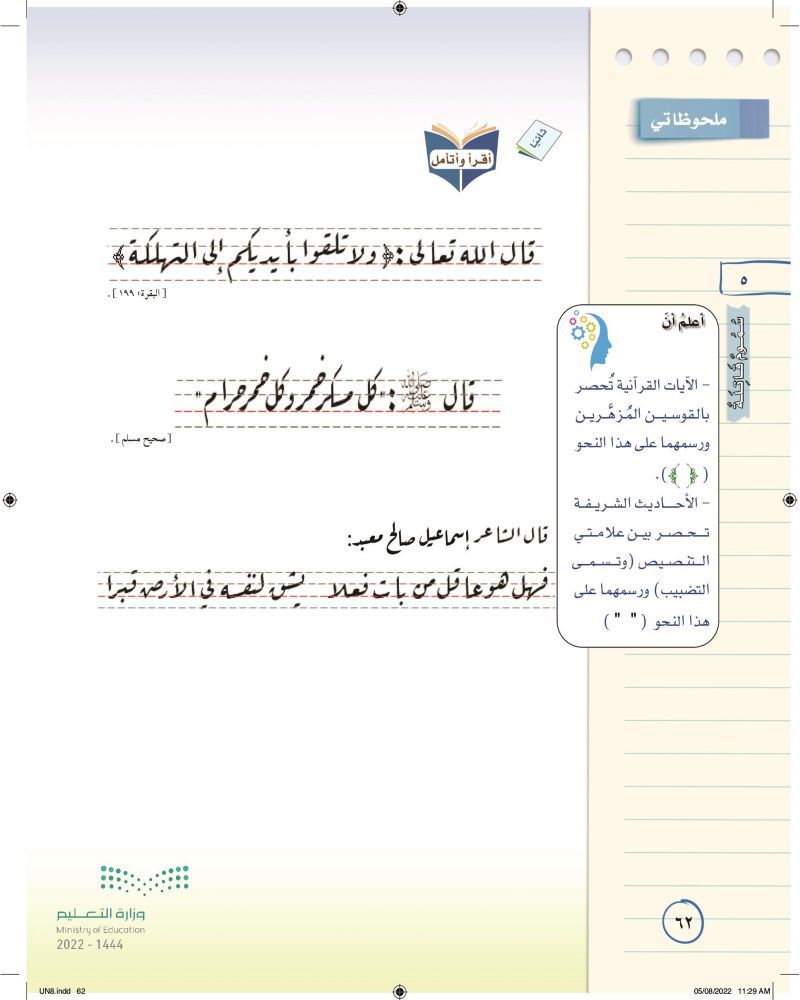 ملحوظاتي
ثانيًا
أقرأ وأتأمل
قال الله تعالى: ﴿ولا تلقوا بأيديكم إلى التهلكة﴾
[البقرة: ١٩٩].
قال ﷺ: "كل مسكر خمر وكل خمر حرام"
[صحيح مسلم].
قال الشاعر إسماعيل صالح معبد:
فهل هو عاقل من بات فعلا يشق لنفسه في الأرض قبرا
٥
سُمُومٌ قَاتِلَةٌ
أعلمُ أنَّ
- الآيات القرآنية تُحصر
بالقوسين المُزهَّرين
ورسمهما على هذا النحو
(﴿ ﴾).
- الأحاديث الشريفة
تحصر بين علامتي
التنصيص (وتسمى
التضبيب) ورسمهما على
هذا النحو (" ")
وزارة التعليم
Ministry of Education
2022 - 1444
٦٢
UN8.indd 62
05/08/2022 11:29 AM